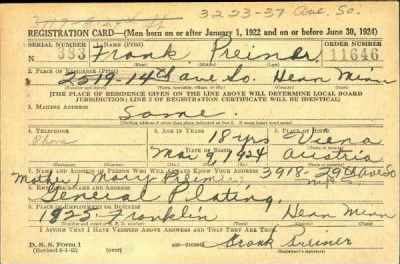 3223-37 Ave. So.
REGISTRATION CARD—(Men born on or after January 1, 1922 and on or before June 30, 1924)
SERIAL NUMBER 1. NAME (Print) ORDER NUMBER
353 Frank Preiner 11646
(First) (Middle) (Last)
2. PLACE OF RESIDENCE (Print)
2519-14th ave So. Henn Minn
(Number and street) (Town, township, village, or city) (County) (State)
[THE PLACE OF RESIDENCE GIVEN ON THE LINE ABOVE WILL DETERMINE LOCAL BOARD
JURISDICTION; LINE 2 OF REGISTRATION CERTIFICATE WILL BE IDENTICAL]
3. MAILING ADDRESS
Same
4. TELEPHONE 5. AGE IN YEARS 6. PLACE OF BIRTH
Phone 18 yrs
DATE OF BIRTH
Mar 9, 1924 Austria
7. NAME AND ADDRESS OF PERSON WHO WILL ALWAYS KNOW YOUR ADDRESS 3918-29th Ave So
Mother Mary Preiner
8. EMPLOYER'S NAME AND ADDRESS
General Plating
9. PLACE OF EMPLOYMENT OR BUSINESS
1925 Franklin Henn Minn
(Number and street or R. F. D. number) (Town) (County) (State)
I AFFIRM THAT I HAVE VERIFIED ABOVE ANSWERS AND THAT THEY ARE TRUE.
D. S. S. Form 1
Frank Preiner
(Registrant's signature)